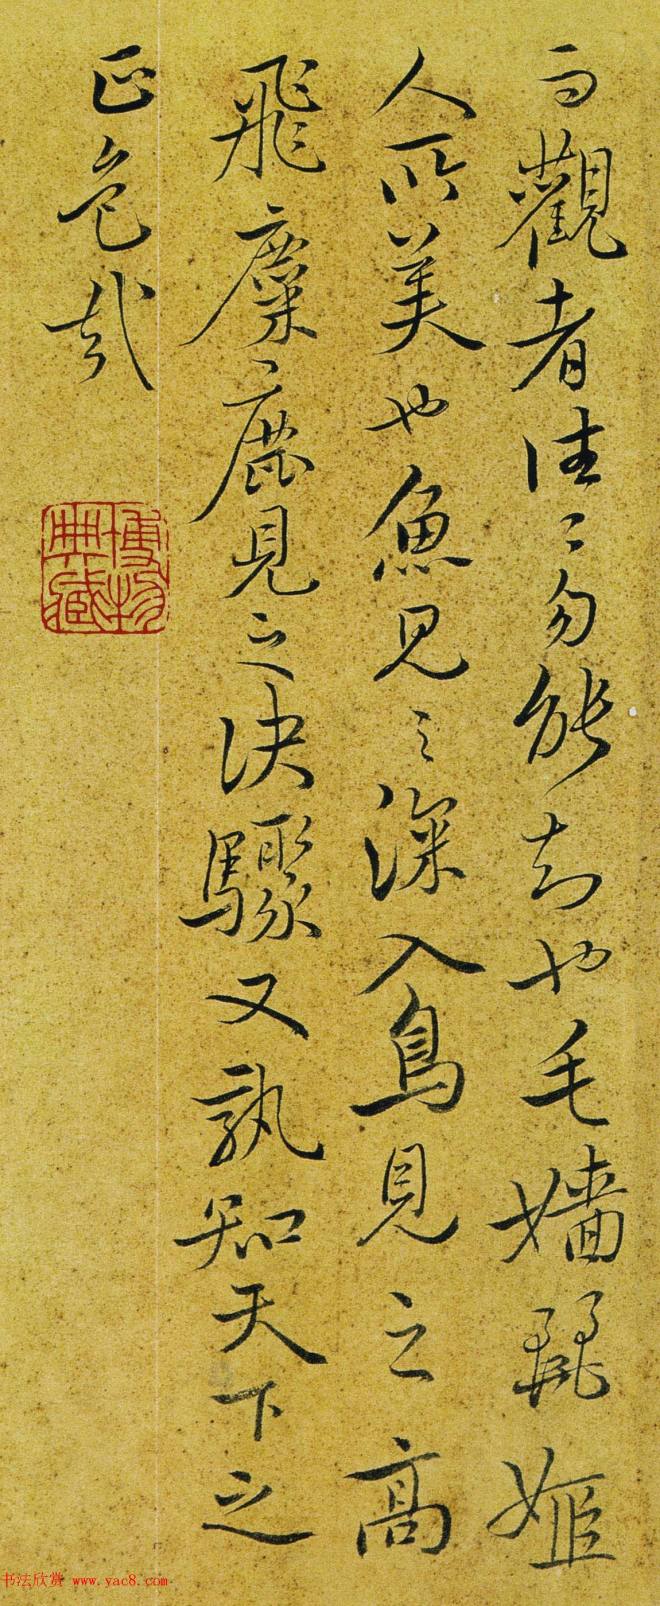 而觀者往〻勿能知也毛嬙麗姬
人所美也魚見之深入鳥見之高
飛麋鹿見之决驟又孰知天下之
正色哉
博物
典藏
书法欣赏 www.yac8.com